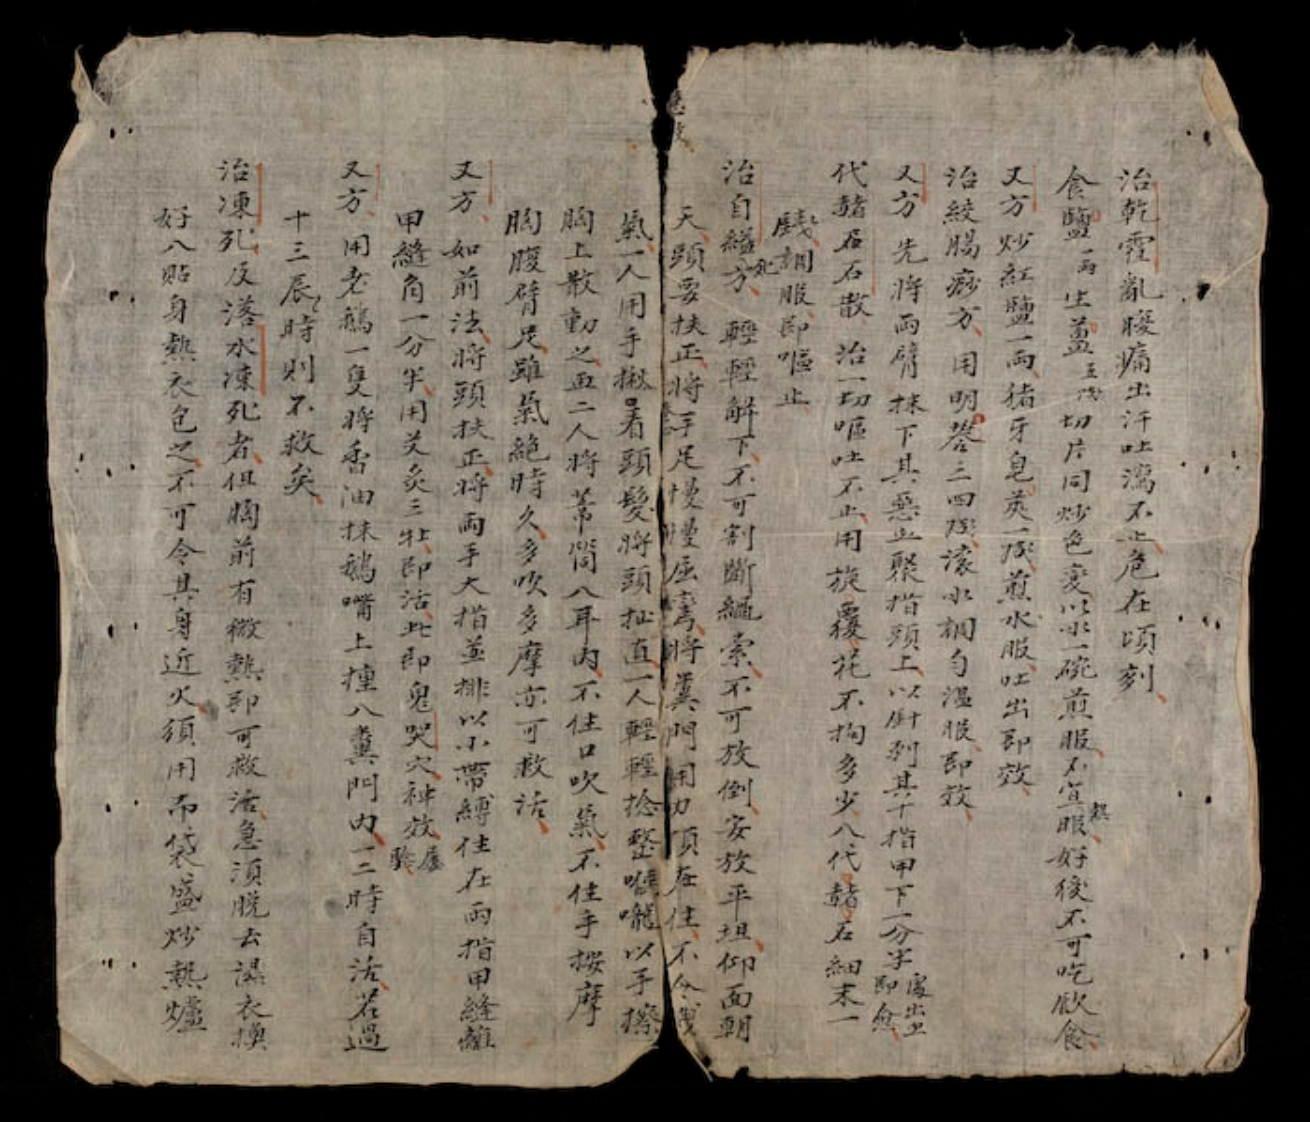 治乾霍亂腹痛出汗吐瀉不止危在頃刻
食鹽一両生薑五戋切片同炒色变以水一碗煎服不宜熱服好後不可吃飲食
又方炒紅鹽一両猪牙皂莢一戋煎水服吐出即效
治絞腸痧方用明礬三四戋滚水調勻温服即效
又方先將両臂抹下其惡血聚指頭上以針刺其十指甲下一分半處出血即愈
代赭石散治一切嘔吐不止用旋覆花不拘多少入代赭石細末一
戋調服即嘔止
治自縊死方輕輕解下不可割斷繩索不可放倒安放平坦仰面朝
天頭要扶正將手足慢慢屈彎將糞門用力頂在住不令洩
氣一人用手揪着頭髮將頭扯直一人輕輕捻整喉嚨以手擦
胸上散動之再二人將筒入耳内不住口吹氣不住手按摩
胸腹臂足雖氣絶時久多吹多摩亦可救活
又方如前法將頭扶正將両手大指並排以小帶縛住在両指甲縫離
甲縫角一分半用艾灸三壯即活此即鬼哭穴神效屢驗
又方用老鵝一隻將香油抹鵝嘴上揰入糞門内一二時自活若過
十三辰時則不救矣
治凍死及落水凍死者但胸前有微熱即可救活急須脱去濕衣換
好人貼身熱衣包之不可令其身近火須用布袋盛炒熱爐